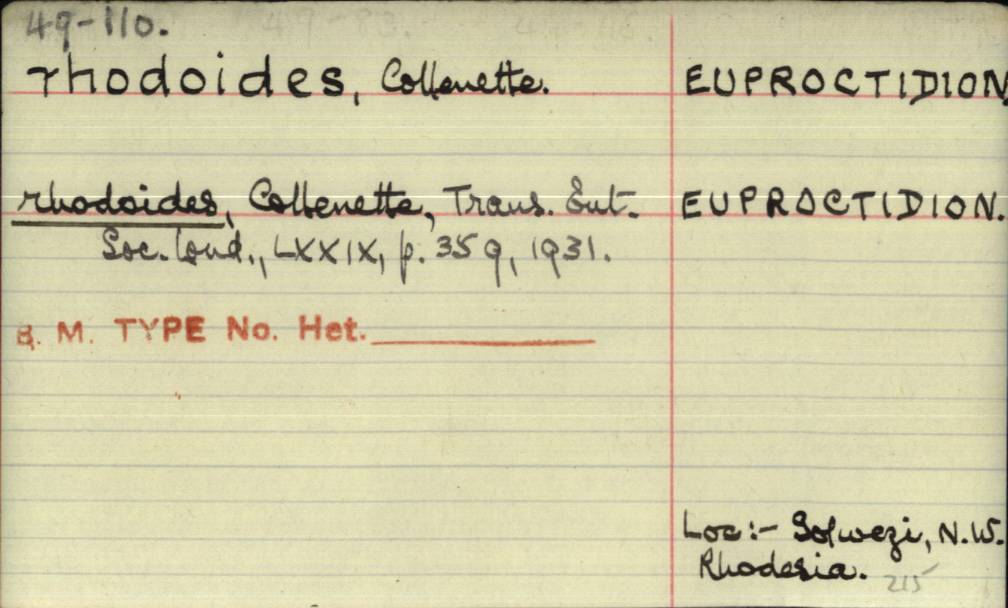 49-110.
rhodoides, Collenette. EUPROCTIDION
rhodoides, Collenette, Trans. Ent. EUPROCTIDION.
Soc. Lond., LXXIX, p. 359, 1931.
B. M. TYPE No. Het.
Loc:- Solwezi, N.W.
Rhodesia. 215